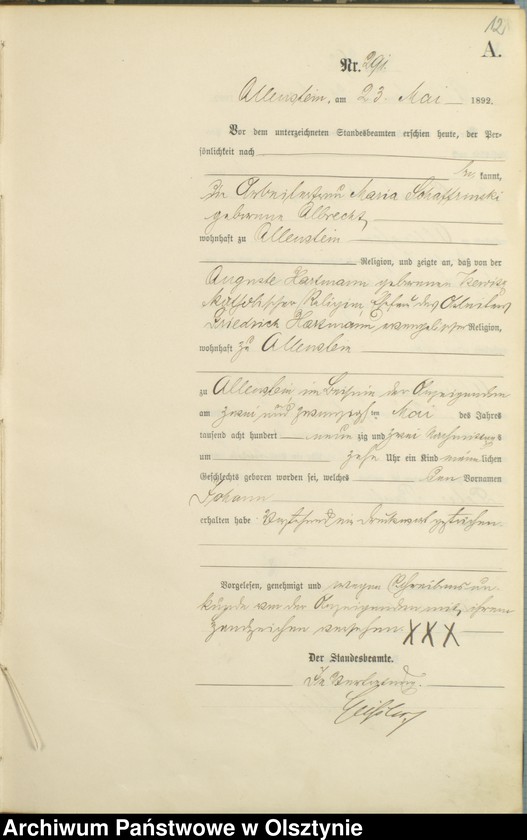 12
A.
Nr. 291.
Allenstein, am 23 Mai 1892.
Vor dem unterzeichneten Standesbeamten erschien heute, der Per-
sönlichkeit nach
be kannt,
die Arbeiterfrau Maria
geborene Albrecht,
wohnhaft zu Allenstein
Religion, und zeigte an, daß von der
Auguste Hartmann geborenen
katholischer Religion, Ehefrau des Arbeiters
Friedrich Hartmann, evangelischer Religion,
wohnhaft zu Allenstein
zu Allenstein, im Beisein der Anzeigenden
am zwei und zwanzigsten Mai des Jahres
tausend acht hundert neun zig und zwei Nachmittags
um zehn Uhr ein Kind männ lichen
Geschlechts geboren worden sei, welches den Vornamen
Johann
erhalten habe. Vorstehend ein Druckwort gestrichen.
Vorgelesen, genehmigt und wegen Schreibensun-
kunde von der Anzeigenden mit ihrem
Handzeichen versehen. XXX
Der Standesbeamte.
In Vertretung.
Archiwum Państwowe w Olsztynie